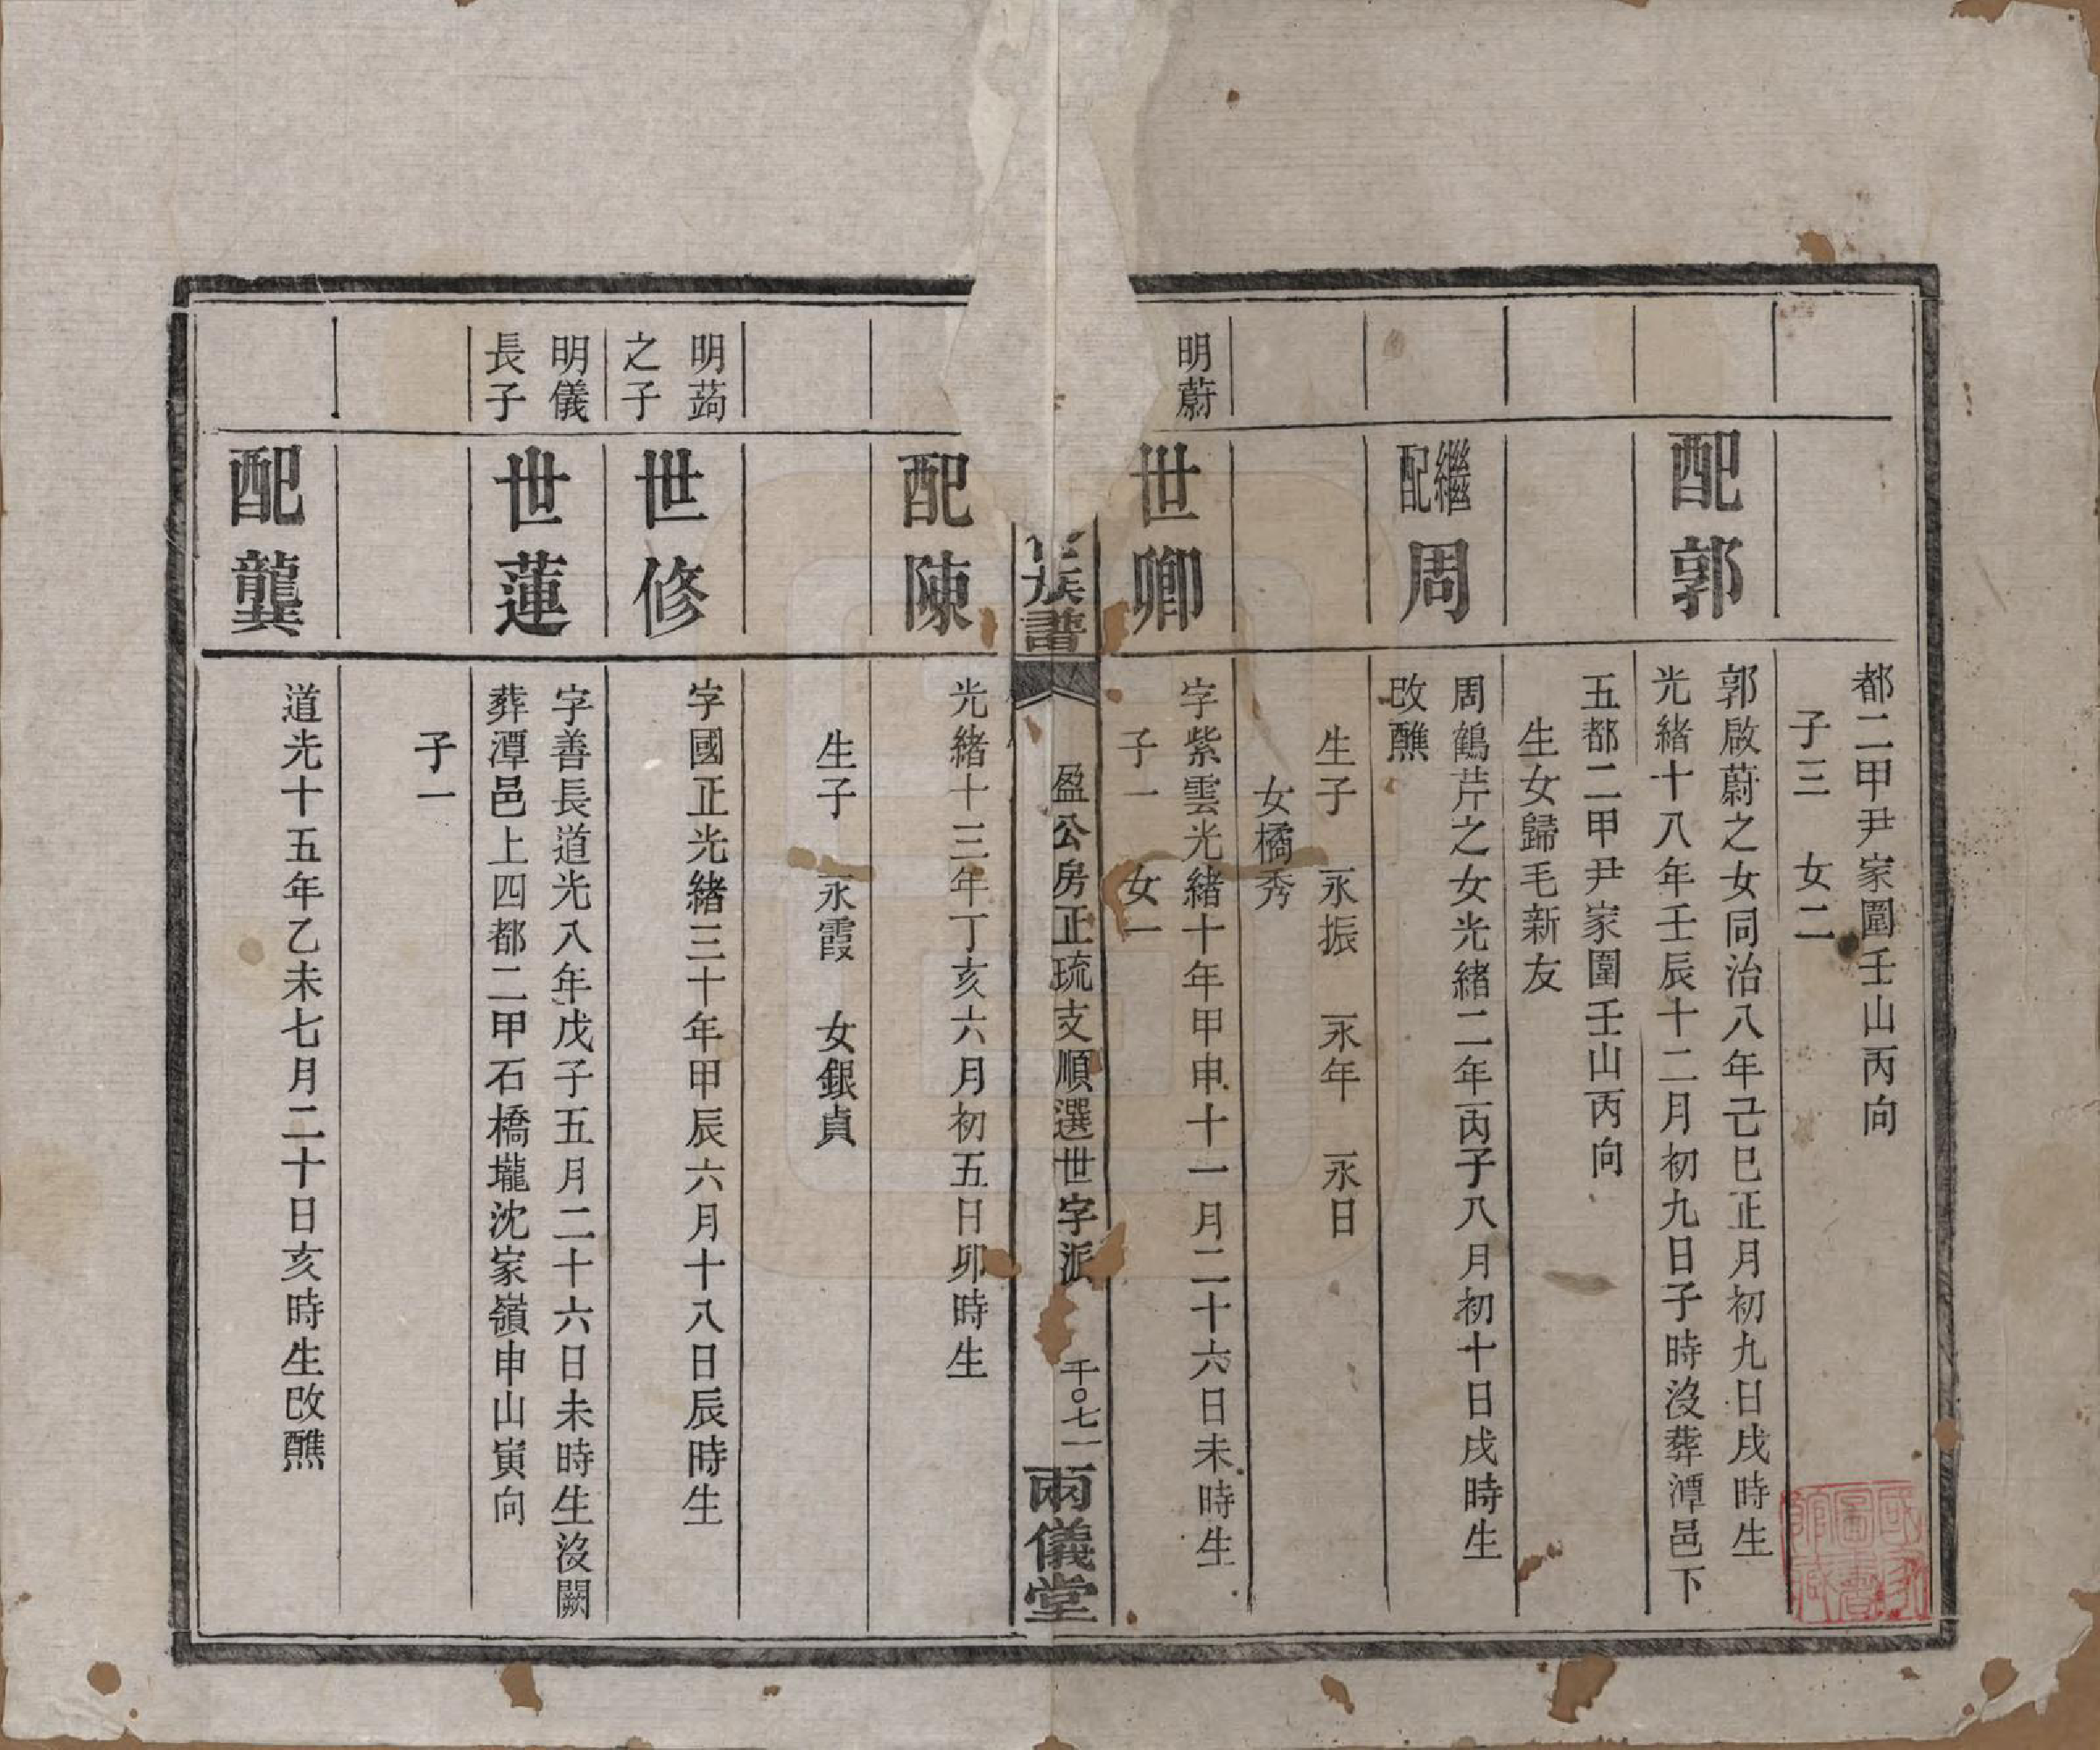 都二甲尹家圍壬山丙向
子三　女二
配郭
郭啟蔚之女同治八年己巳正月初九日戌時生
光緒十八年壬辰十二月初九日子時沒葬潭邑下
五都二甲尹家圍壬山丙向
生女歸毛新友
繼配周
周鶴芹之女光緒二年丙子八月初十日戌時生
改醮
生子　永振　永年　永日
女橘秀
明蔚
世卿
字紫雲光緒十年甲申十一月二十六日未時生
子一　女一
族譜
盈公房正琉支順選世字派
千〇七一
兩儀堂
配陳
光緒十三年丁亥六月初五日卯時生
生子　永霞　女銀貞
明蒟
之子
世修
字國正光緒三十年甲辰六月十八日辰時生
明儀
長子
世蓮
字善長道光八年戊子五月二十六日未時生沒闕
葬潭邑上四都二甲石橋壠沈家嶺申山寅向
子一
配龔
道光十五年乙未七月二十日亥時生改醮
國家圖書館藏